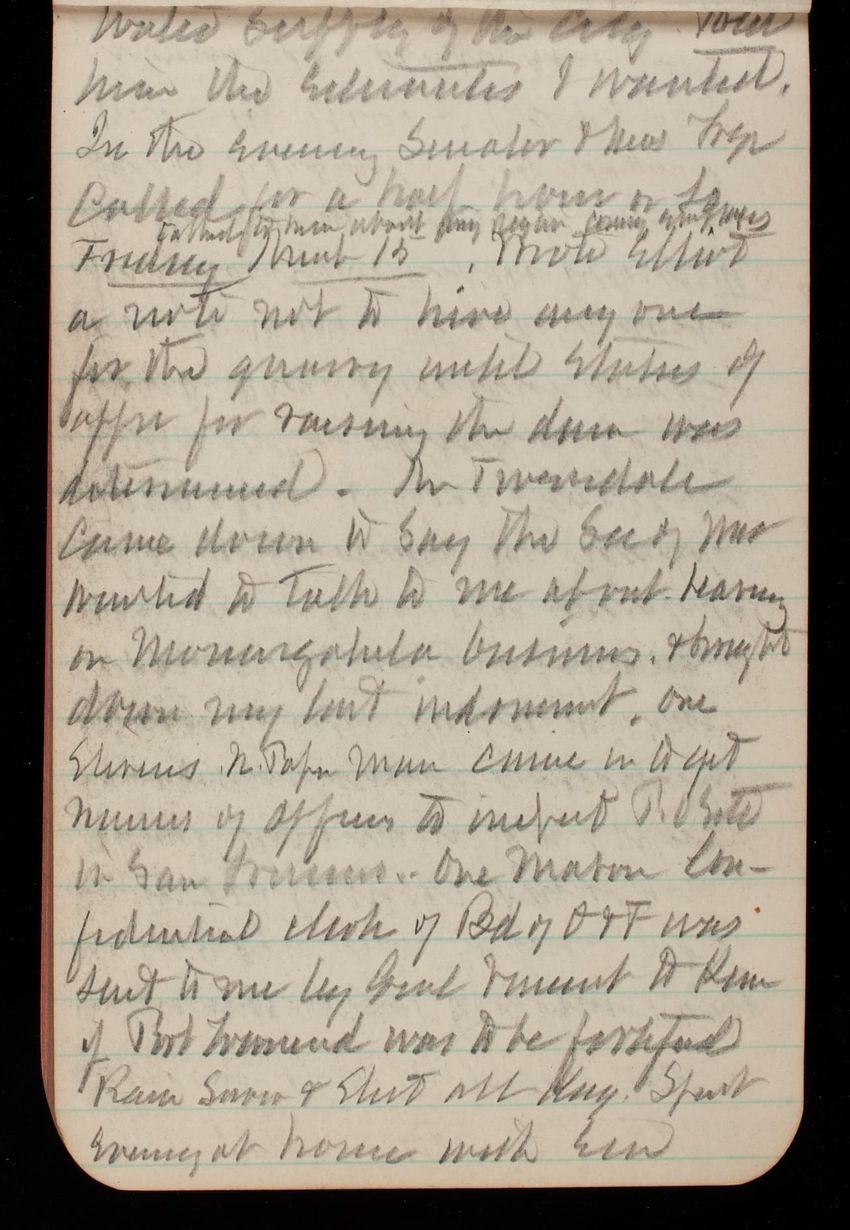 Water Supply of the City. Told
him the Estimates I wanted.
In the Evening Senator & Mrs
Called for a half hour or so
talked to him about my
Friday March 15, Wrote Elliot
a note not to hire any one
for the quarry until Status of
offer for raising the dam was
determined. Mr Tweedale
Came down to Say the Sec of War
wanted to talk to me about hearing
on Monongahela business. & brought
down my last indorsement. One
Stevens N. Paper Man came in to get
names of officers to inspect
in San One Mason Con-
fidential clerk of Bd of O & F was
sent to me by Genl Vincent to Know
if Port Townsend was to be fortified
Rain Snow & Sleet all day. Spent
Evening at home with Em